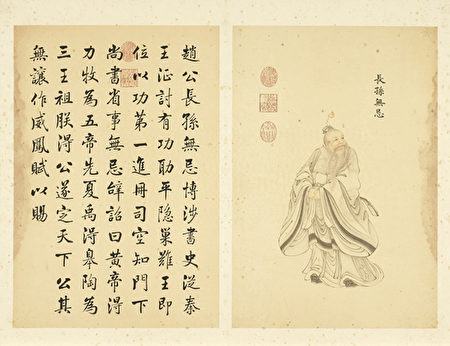 長孫無忌
趙公長孫無忌博涉書史從秦
王征討有功助平隐巢難王即
位以功第一進冊司空知門下
尚書省事無忌辭詔曰黃帝淂
力牧為五帝先夏禹淂皋陶為
三王祖朕淂公遂定天下公其
無讓作威鳳賦以賜